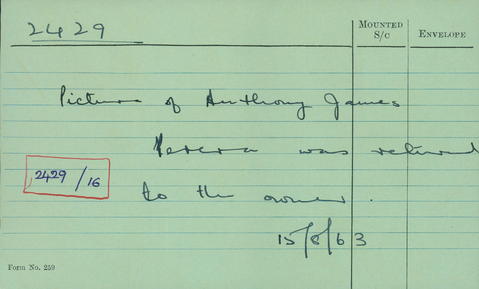 2429
MOUNTED S/C
ENVELOPE
Picture of Anthony James
Perera was returned
2429/16
to the owner.
15/8/63
Form No. 259